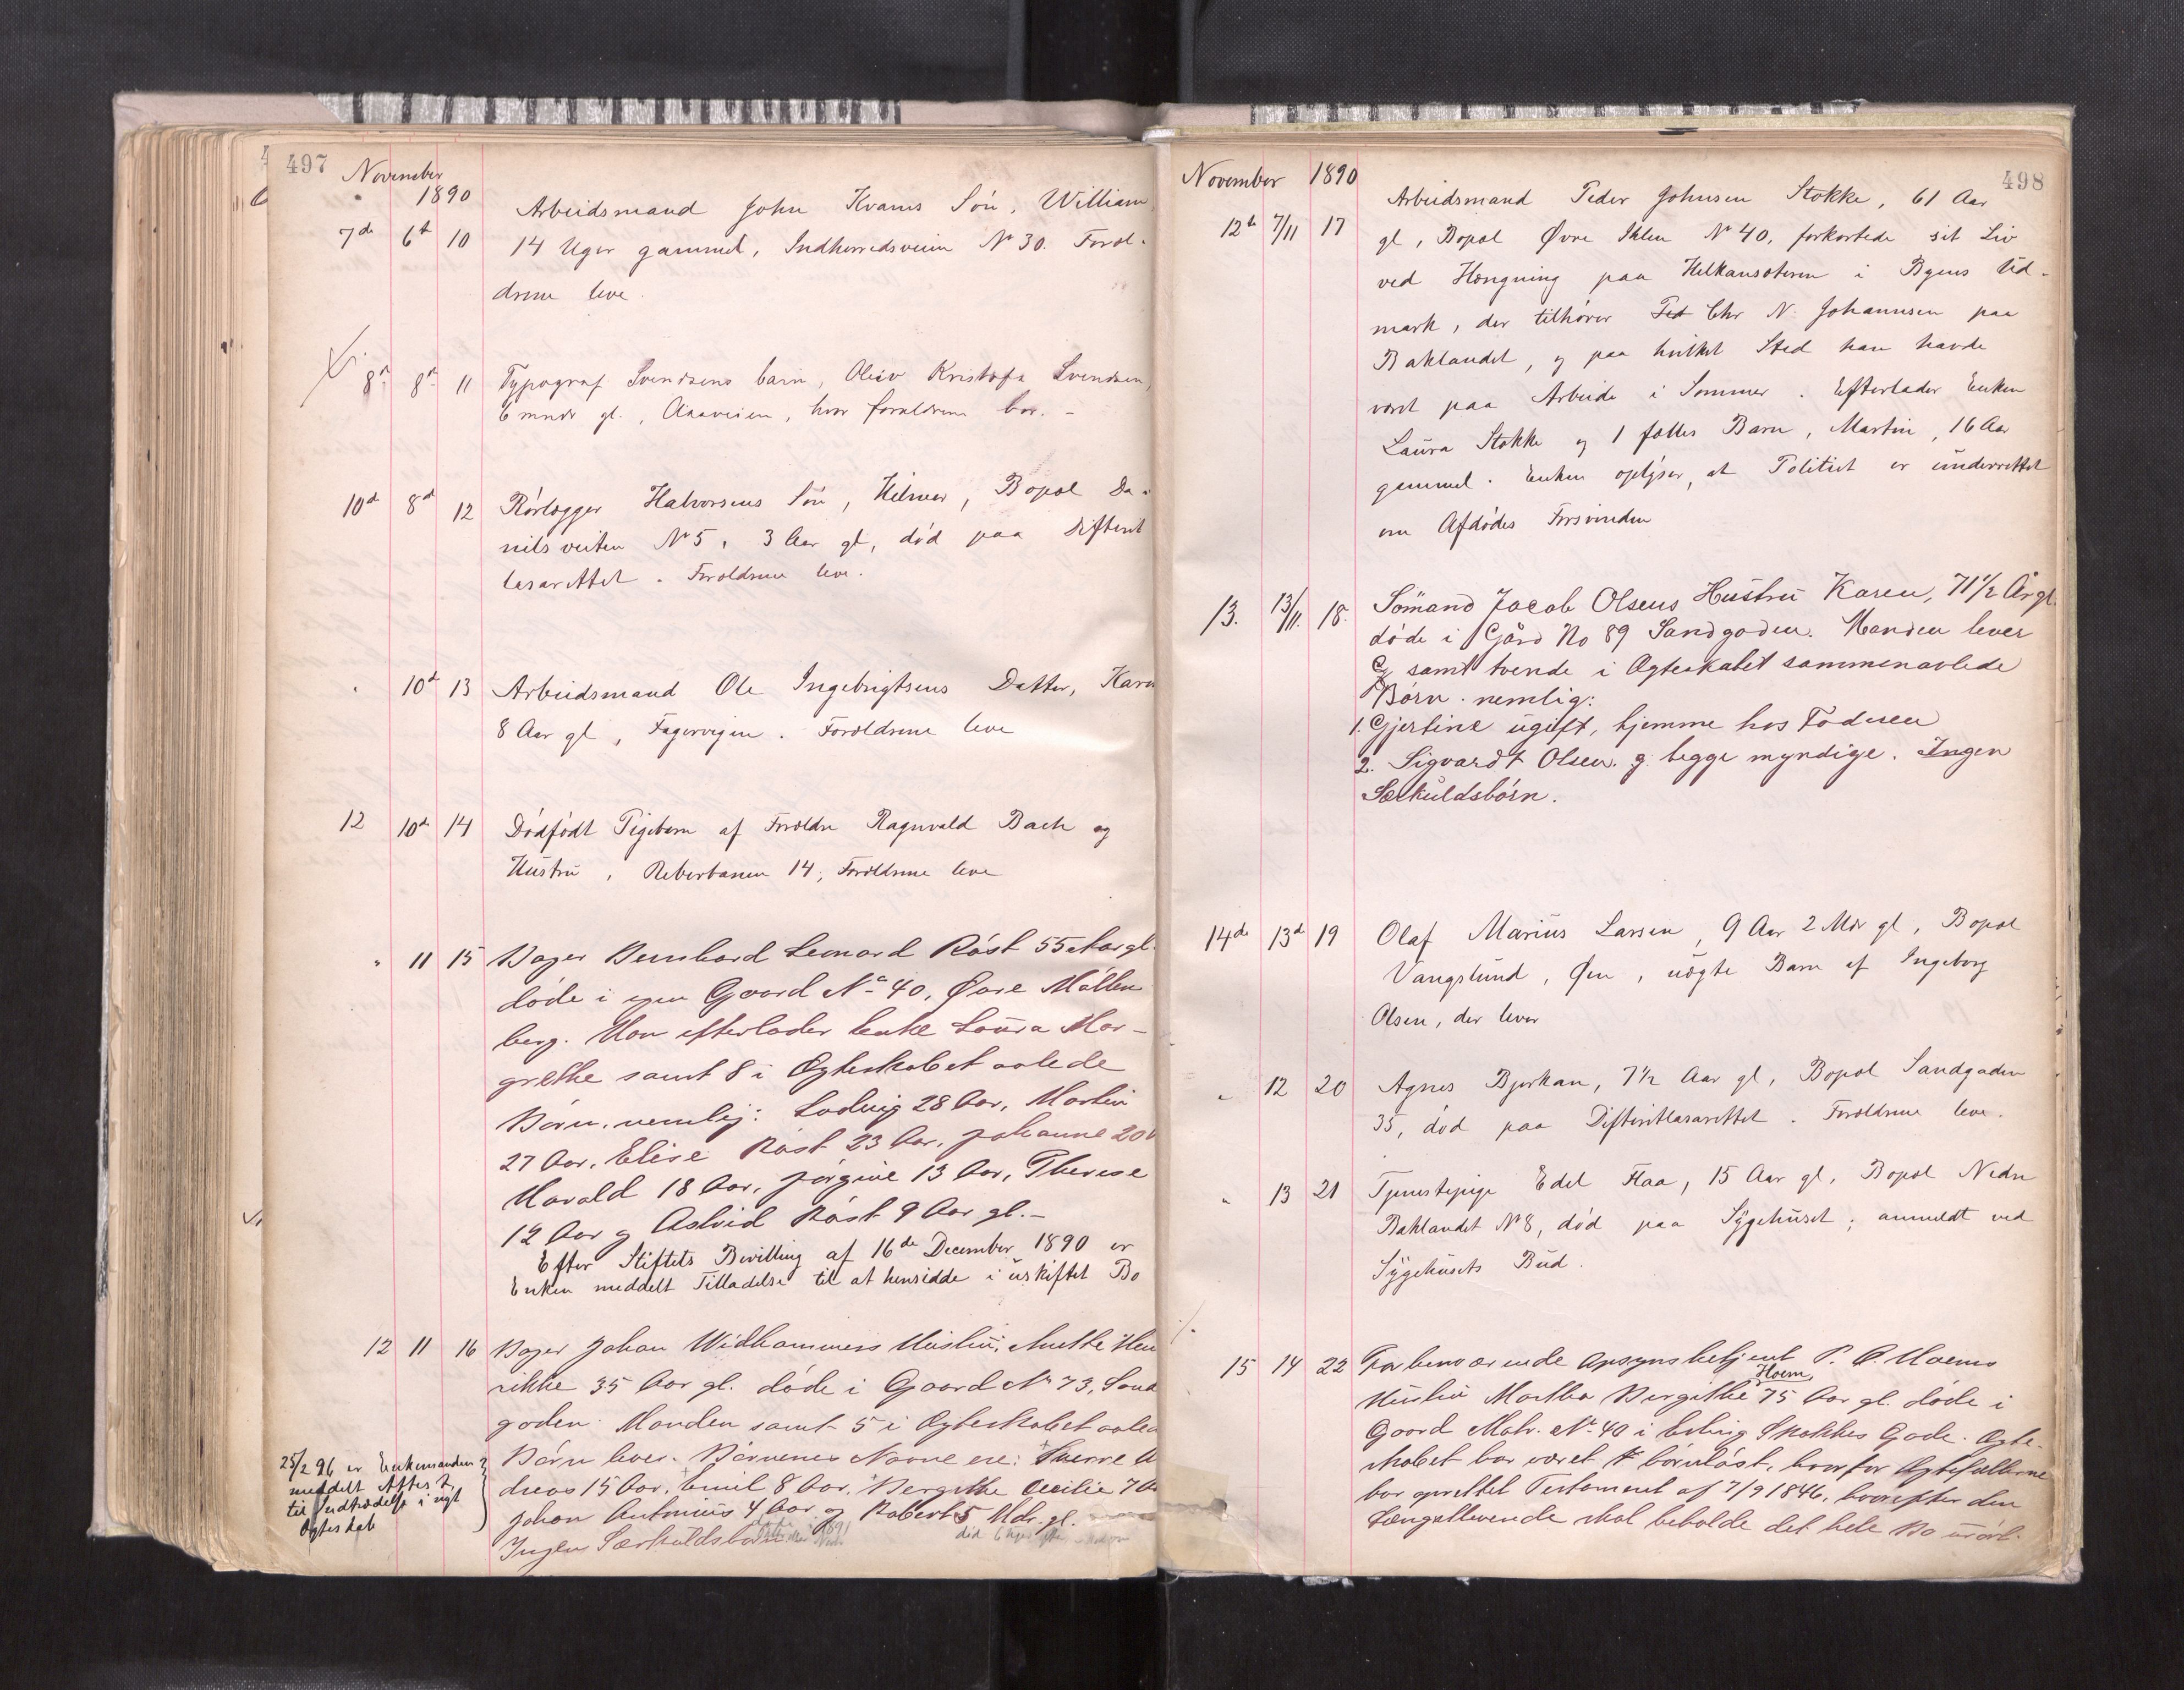 497
November
1890
7de 6te 10 Arbeidsmand John Kvams Søn, William
14 Uger gammel, Indherredsveien No 30. Foræl-
drene leve.
8de 8de 11 Typograf Svendsens barn, Oleiv Kristofa Svendsen,
6 mndr gl., Aasveien, hvor forældrene bor. -
10de 8de 12 Rørlægger Halvorsens Søn, Hilmar, Bopæl Da-
nilsveiten No 5, 3 Aar gl, død paa Difterit
lasarettet. Forældrene leve.
10de 13 Arbeidsmand Ole Ingebrigtsens Datter, Karn
8 Aar gl, Fagervigen. Forældrene leve
12 10de 14 Dødfødt Pigebarn af Forældre Ragnvald Bach og
Hustru, Reberbanen 14, Forældrene leve
" 11 15 Bager Bernhard Leonard Røst 55 Aar gl.
døde i egen Gaard No 40, Øvre Møllen
berg. Han efterlader Enke Laura Mar-
grethe samt 8 i Ægteskabet avlede
Børn, nemlig: Ludvig 28 Aar, Martin
27 Aar, Elise Røst 23 Aar, Johanne 20
Harald 18 Aar, Jørgine 13 Aar, Therese
12 Aar og Astrid Røst 9 Aar gl. -
Efter Stiftets Bevilling af 16de December 1890 er
Enken meddelt Tilladelse til at hensidde i uskiftet Bo
12 11 16 Bager Johan Widhammers Hustru, Anette Hen
rikke 35 Aar gl. døde i Gaard No 73, Sand
gaden. Manden samt 5 i Ægteskabet avled
Børn lever. Børnenes Navne ere: Sverre A
dreas 15 Aar, Emil 8 Aar, Bergitte Cecilie 7 Aa
Johan Antonius 4 Aar og Robert 5 Mdr. gl.
Ingen Særkuldsbørn
25/2 96 er Enkemanden
meddelt Attest
til Indtrædelse i nyt
Ægteskab
498
November 1890
12te 7/11 17 Arbeidsmand Peder Johnsen Stokke, 61 Aar
gl, Bopæl Øvre Ihlen No 40, forkortede sit Liv
ved Hængning paa Helkansæteren i Byens Ud-
mark, der tilhører Ted Chr N. Johannsen paa
Baklandet, og paa hvilket Sted han havde
været paa Arbeide i Sommer. Efterlader Enken
Laura Stokke og 1 fælles Barn, Martin, 16 Aar
gammel. Enken oplyser, at Politiet er underrettet
om Afdødes Forsvinden
13. 13/11. 18. Sømand Jacob Olsens Hustru Karen, 71 1/2 År gl.
døde i Gård No 89 Sandgaden. Manden lever
og samt tvende i Ægteskabet sammenavlede
Børn. nemlig:
1. Gjertine ugift, hjemme hos Faderen
2. Sigvardt Olsen. g. begge myndige. Ingen
Særkuldsbørn.
14de 13de 19 Olaf Marius Larsen, 9 Aar 2 Mdr gl, Bopæl
Vangslund, Øen, uægte Barn af Ingeborg
Olsen, der lever
" 12 20 Agnes Bjerkan, 7 1/2 Aar gl, Bopæl Sandgaden
35, død paa Difteritlasarettet. Forældrene leve.
" 13 21 Tjenestepige Edel Flaa, 15 Aar gl, Bopæl Nedre
Baklandet No 8, død paa Sygehuset; anmeldt ved
Sygehusets Bud.
15 14 22 Forhenværende Opsynsbetjent P. O. Hoems
Hustru Martha Bergitthe Hoem, 75 Aar gl. døde i
Gaard Matr. No 40 i Erling Skakkes Gade. Ægte-
skabet har været barnløst, hvorfor Ægtefællerne
har oprettet Testament af 7/9 1846, hvorefter den
Længstlevende skal beholde det hele Bo urørt.